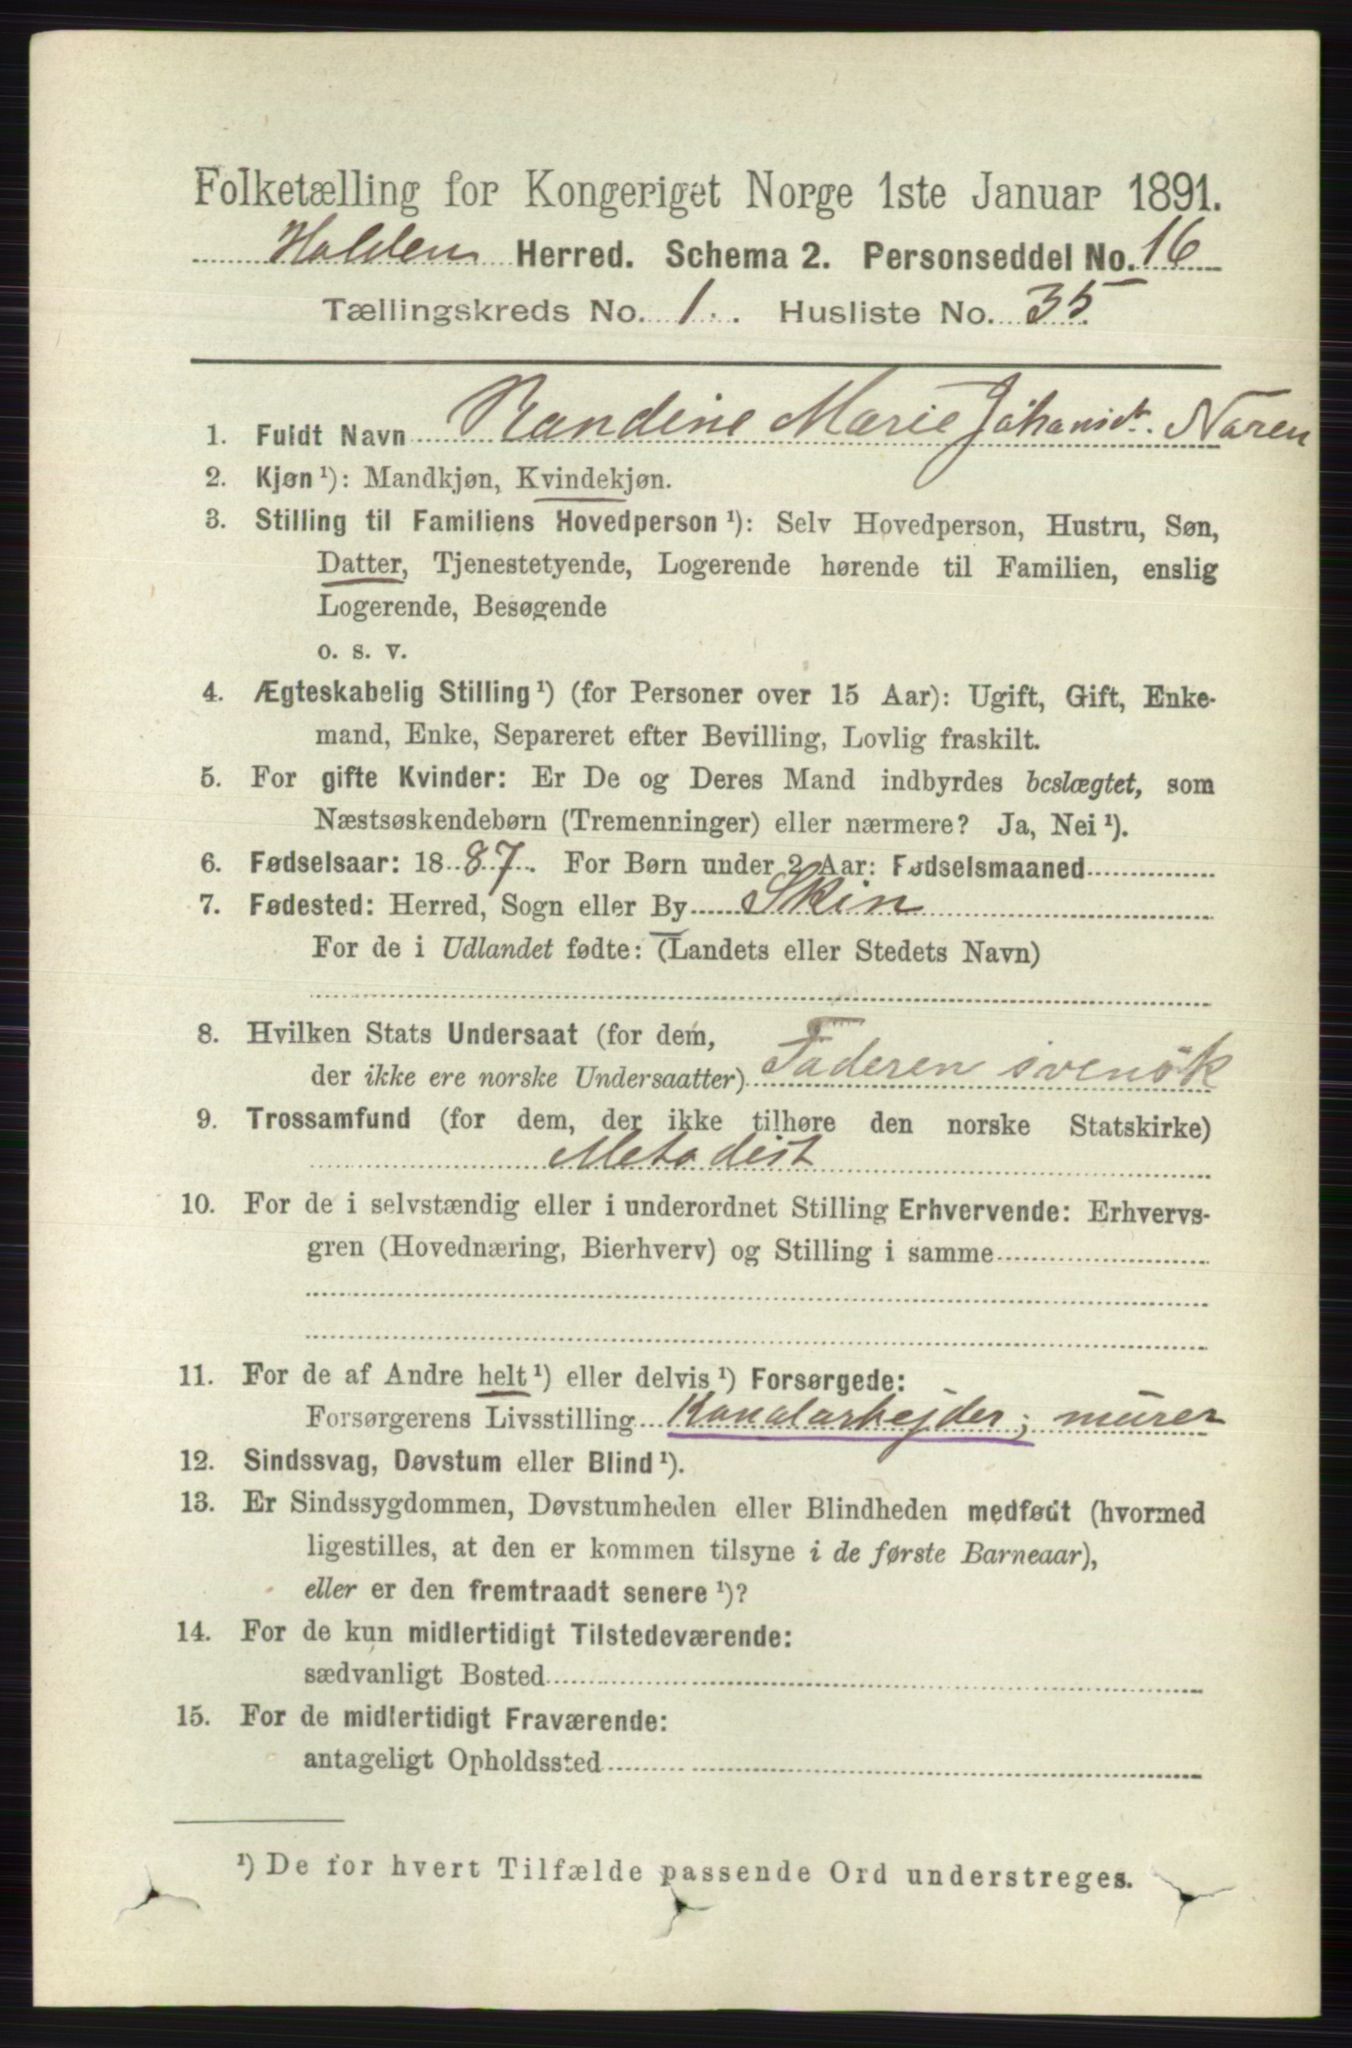 Folketælling for Kongeriget Norge 1ste Januar 1891.
Holden Herred. Schema 2. Personseddel No. 16
Tællingskreds No. 1. Husliste No. 35
1. Fuldt Navn Randine Marie Johansdt. Noren
2. Kjøn ¹): Mandkjøn, Kvindekjøn.
3. Stilling til Familiens Hovedperson ¹): Selv Hovedperson, Hustru, Søn,
Datter, Tjenestetyende, Logerende hørende til Familien, enslig
Logerende, Besøgende
o. s. v.
4. Ægteskabelig Stilling ¹) (for Personer over 15 Aar): Ugift, Gift, Enke-
mand, Enke, Separeret efter Bevilling, Lovlig fraskilt.
5. For gifte Kvinder: Er De og Deres Mand indbyrdes beslægtet, som
Næstsøskendebørn (Tremenninger) eller nærmere? Ja, Nei ¹).
6. Fødselsaar: 1887. For Børn under 2 Aar: Fødselsmaaned
7. Fødested: Herred, Sogn eller By Skin
For de i Udlandet fødte: (Landets eller Stedets Navn)
8. Hvilken Stats Undersaat (for dem,
der ikke ere norske Undersaatter) Faderen svensk
9. Trossamfund (for dem, der ikke tilhøre den norske Statskirke)
Metodist
10. For de i selvstændig eller i underordnet Stilling Erhvervende: Erhvervs-
gren (Hovednæring, Bierhverv) og Stilling i samme
11. For de af Andre helt ¹) eller delvis ¹) Forsørgede:
Forsørgerens Livsstilling Kanalarbejder; murer
12. Sindssvag, Døvstum eller Blind ¹).
13. Er Sindssygdommen, Døvstumheden eller Blindheden medfødt (hvormed
ligestilles, at den er kommen tilsyne i de første Barneaar),
eller er den fremtraadt senere ¹)?
14. For de kun midlertidigt Tilstedeværende:
sædvanligt Bosted
15. For de midlertidigt Fraværende:
antageligt Opholdssted
¹) De for hvert Tilfælde passende Ord understreges.